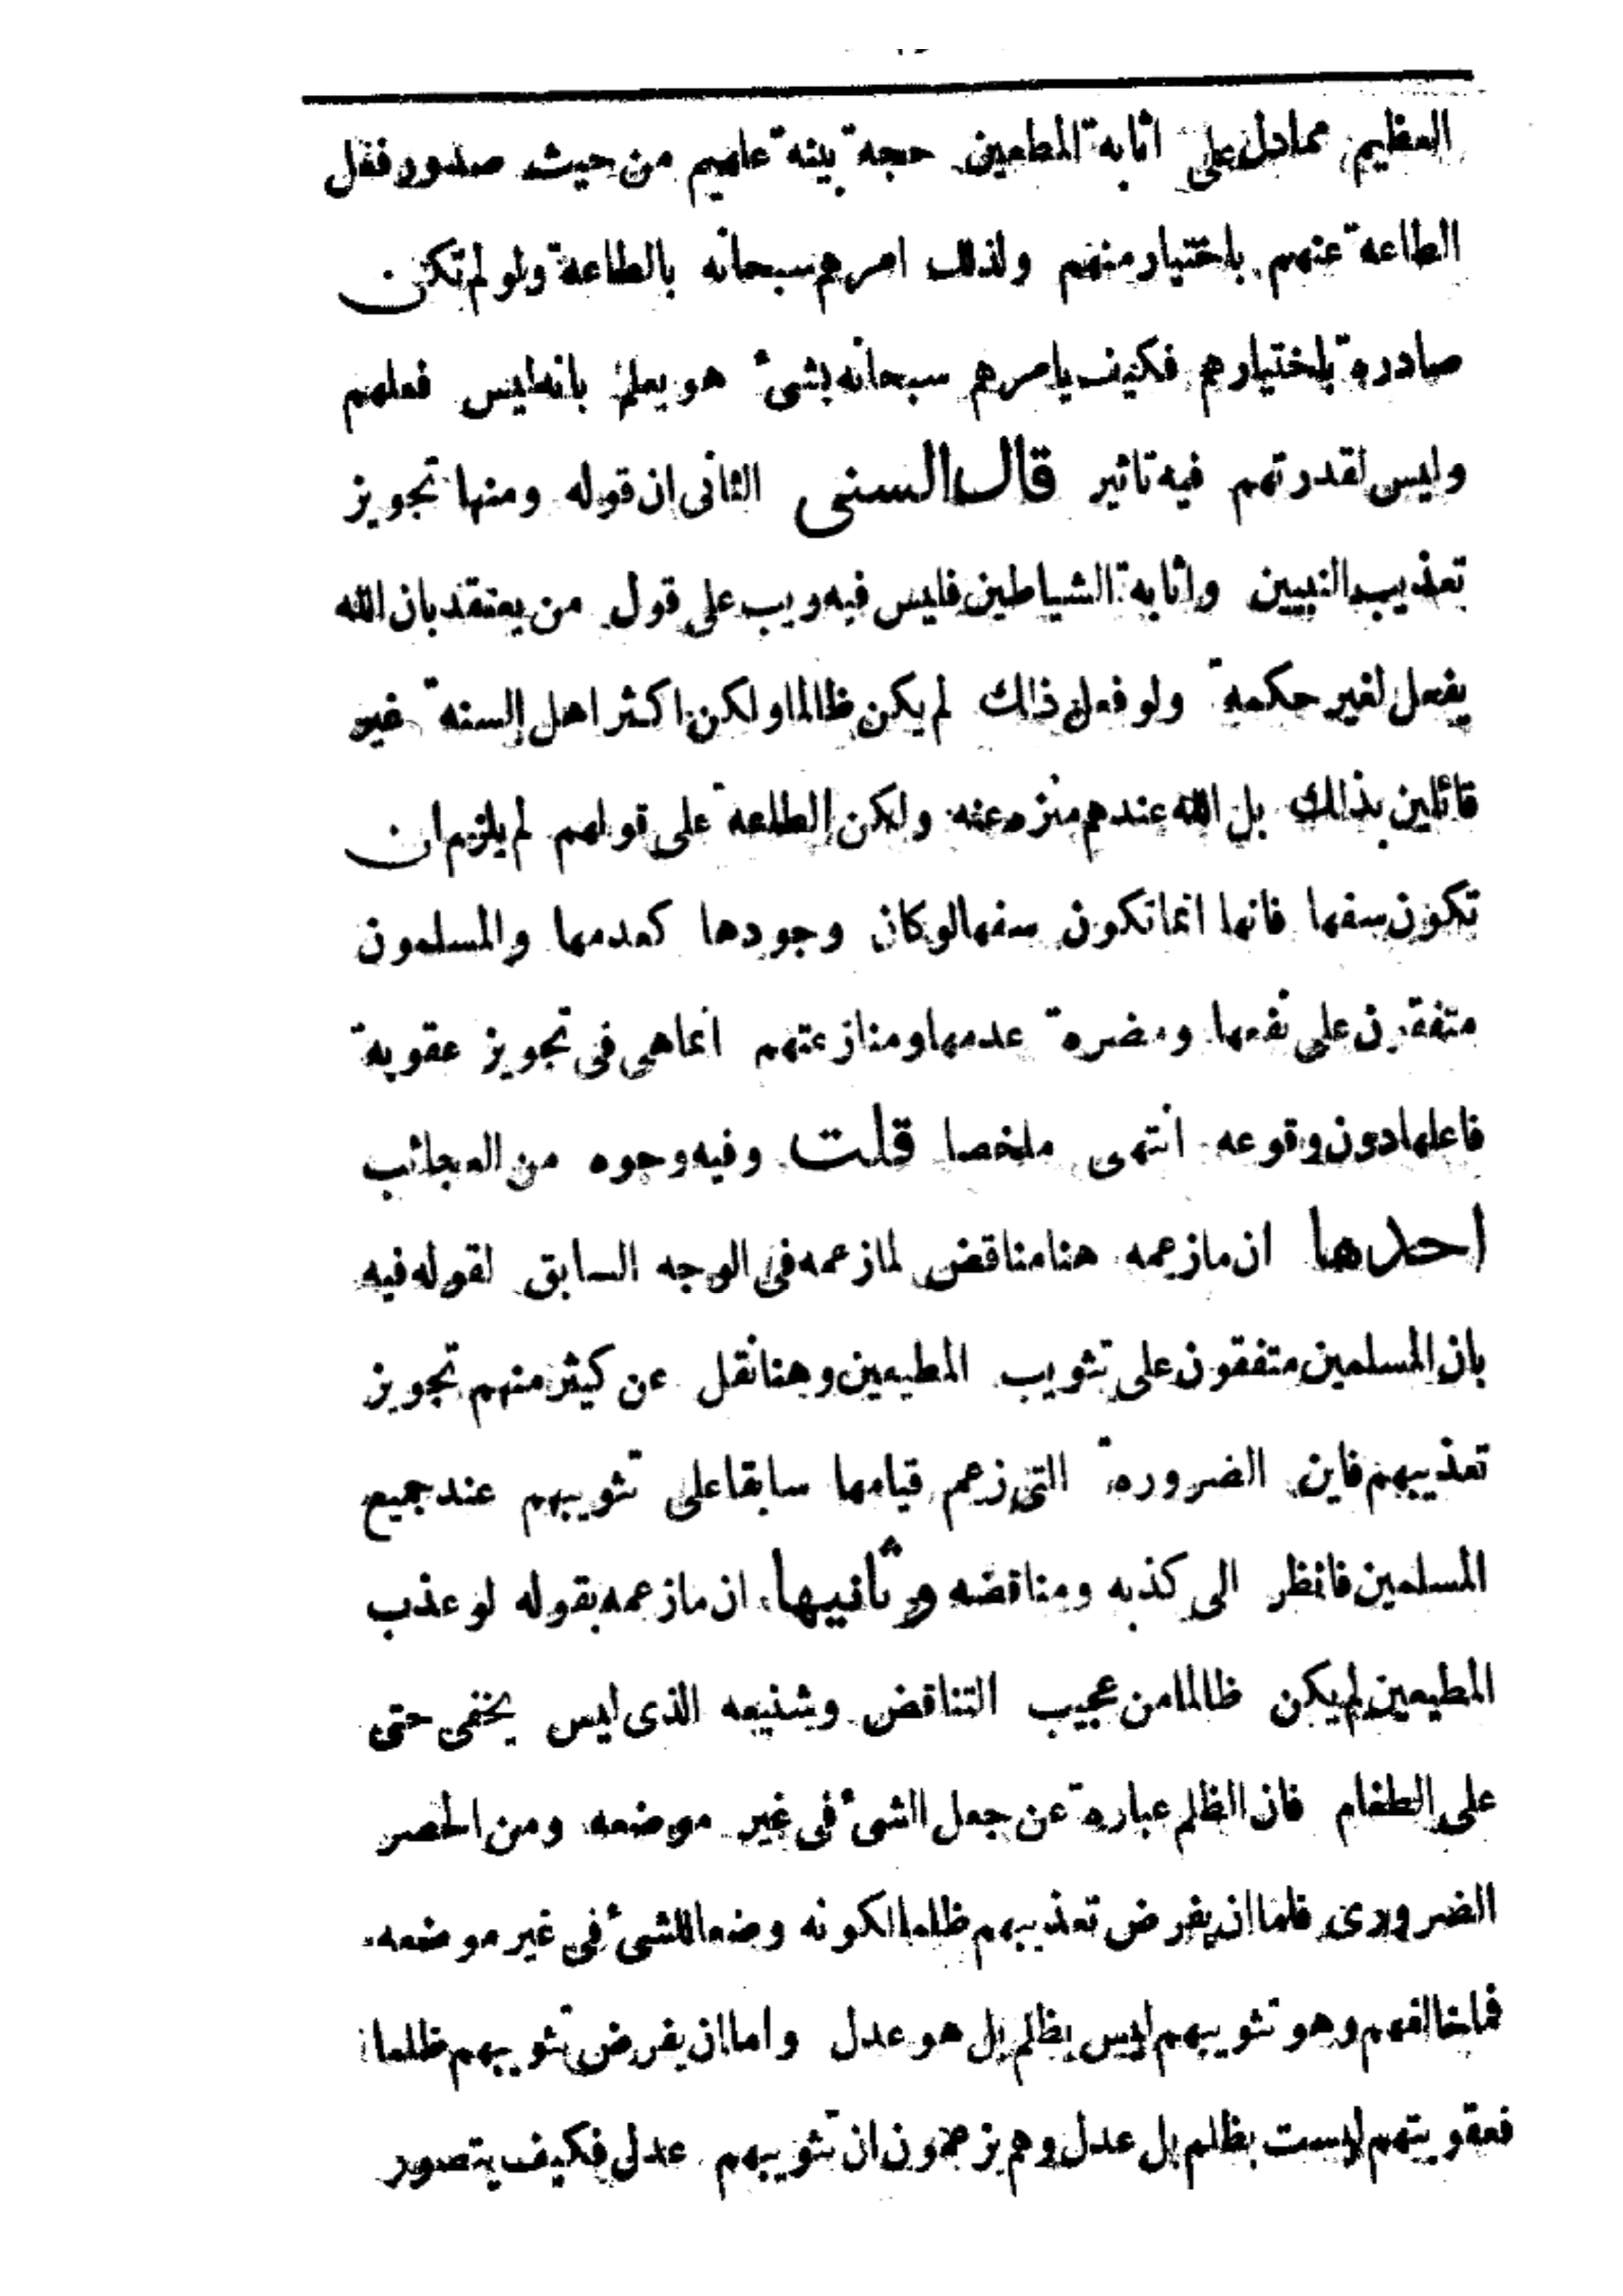 العظيم مما دل على اثابة المطيعين حجة بينة عليهم من حيث صدور فعل
الطاعة عنهم باختيار منهم ولذلك امرهم سبحانه بالطاعة ولو لم تكن
صادرة باختيارهم فكيف يامرهم سبحانه بشىء هو يعلم بانه ليس فعلهم
وليس لقدرتهم فيه تاثير قال السنى الثانى ان قوله ومنها تجويز
تعذيب النبيين واثابة الشياطين فليس فيه ريب على قول من يعتقد بان الله
يفعل لغير حكمة ولو فعل ذلك لم يكن ظالما ولكن اكثر اهل السنة غير
قائلين بذلك بل الله عندهم منزه عنه ولكن الطاعة على قولهم لم يلزم ان
تكون سفها فانها انما تكون سفها لو كان وجودها كعدمها والمسلمون
متفقون على نفعها ومضرة عدمها ومنازعتهم انما هى فى تجويز عقوبة
فاعلها دون وقوعه انتهى ملخصا قلت وفيه وجوه من العجائب
احدها ان ما زعمه هنا مناقض لما زعمه فى الوجه السابق لقوله فيه
بان المسلمين متفقون على تثويب المطيعين وهنا نقل عن كثير منهم تجويز
تعذيبهم فاين الضرورة التى زعم قيامها سابقا على تثويبهم عند جميع
المسلمين فانظر الى كذبه ومناقضه وثانيها ان ما زعمه بقوله لو عذب
المطيعين لم يكن ظالما من عجيب التناقض وشنيعه الذى ليس يخفى حتى
على الطغام فان الظلم عبارة عن جعل الشىء فى غير موضعه ومن الحصر
الضرورى فاما ان يفرض تعذيبهم ظلما لكونه وضعا للشىء فى غير موضعه
فما خالفهم وهو تثويبهم ليس بظلم بل هو عدل واما ان يفرض تثويبهم ظلما
فعقوبتهم ليست بظلم بل عدل وهم يزعمون ان تثويبهم عدل فكيف يتصور